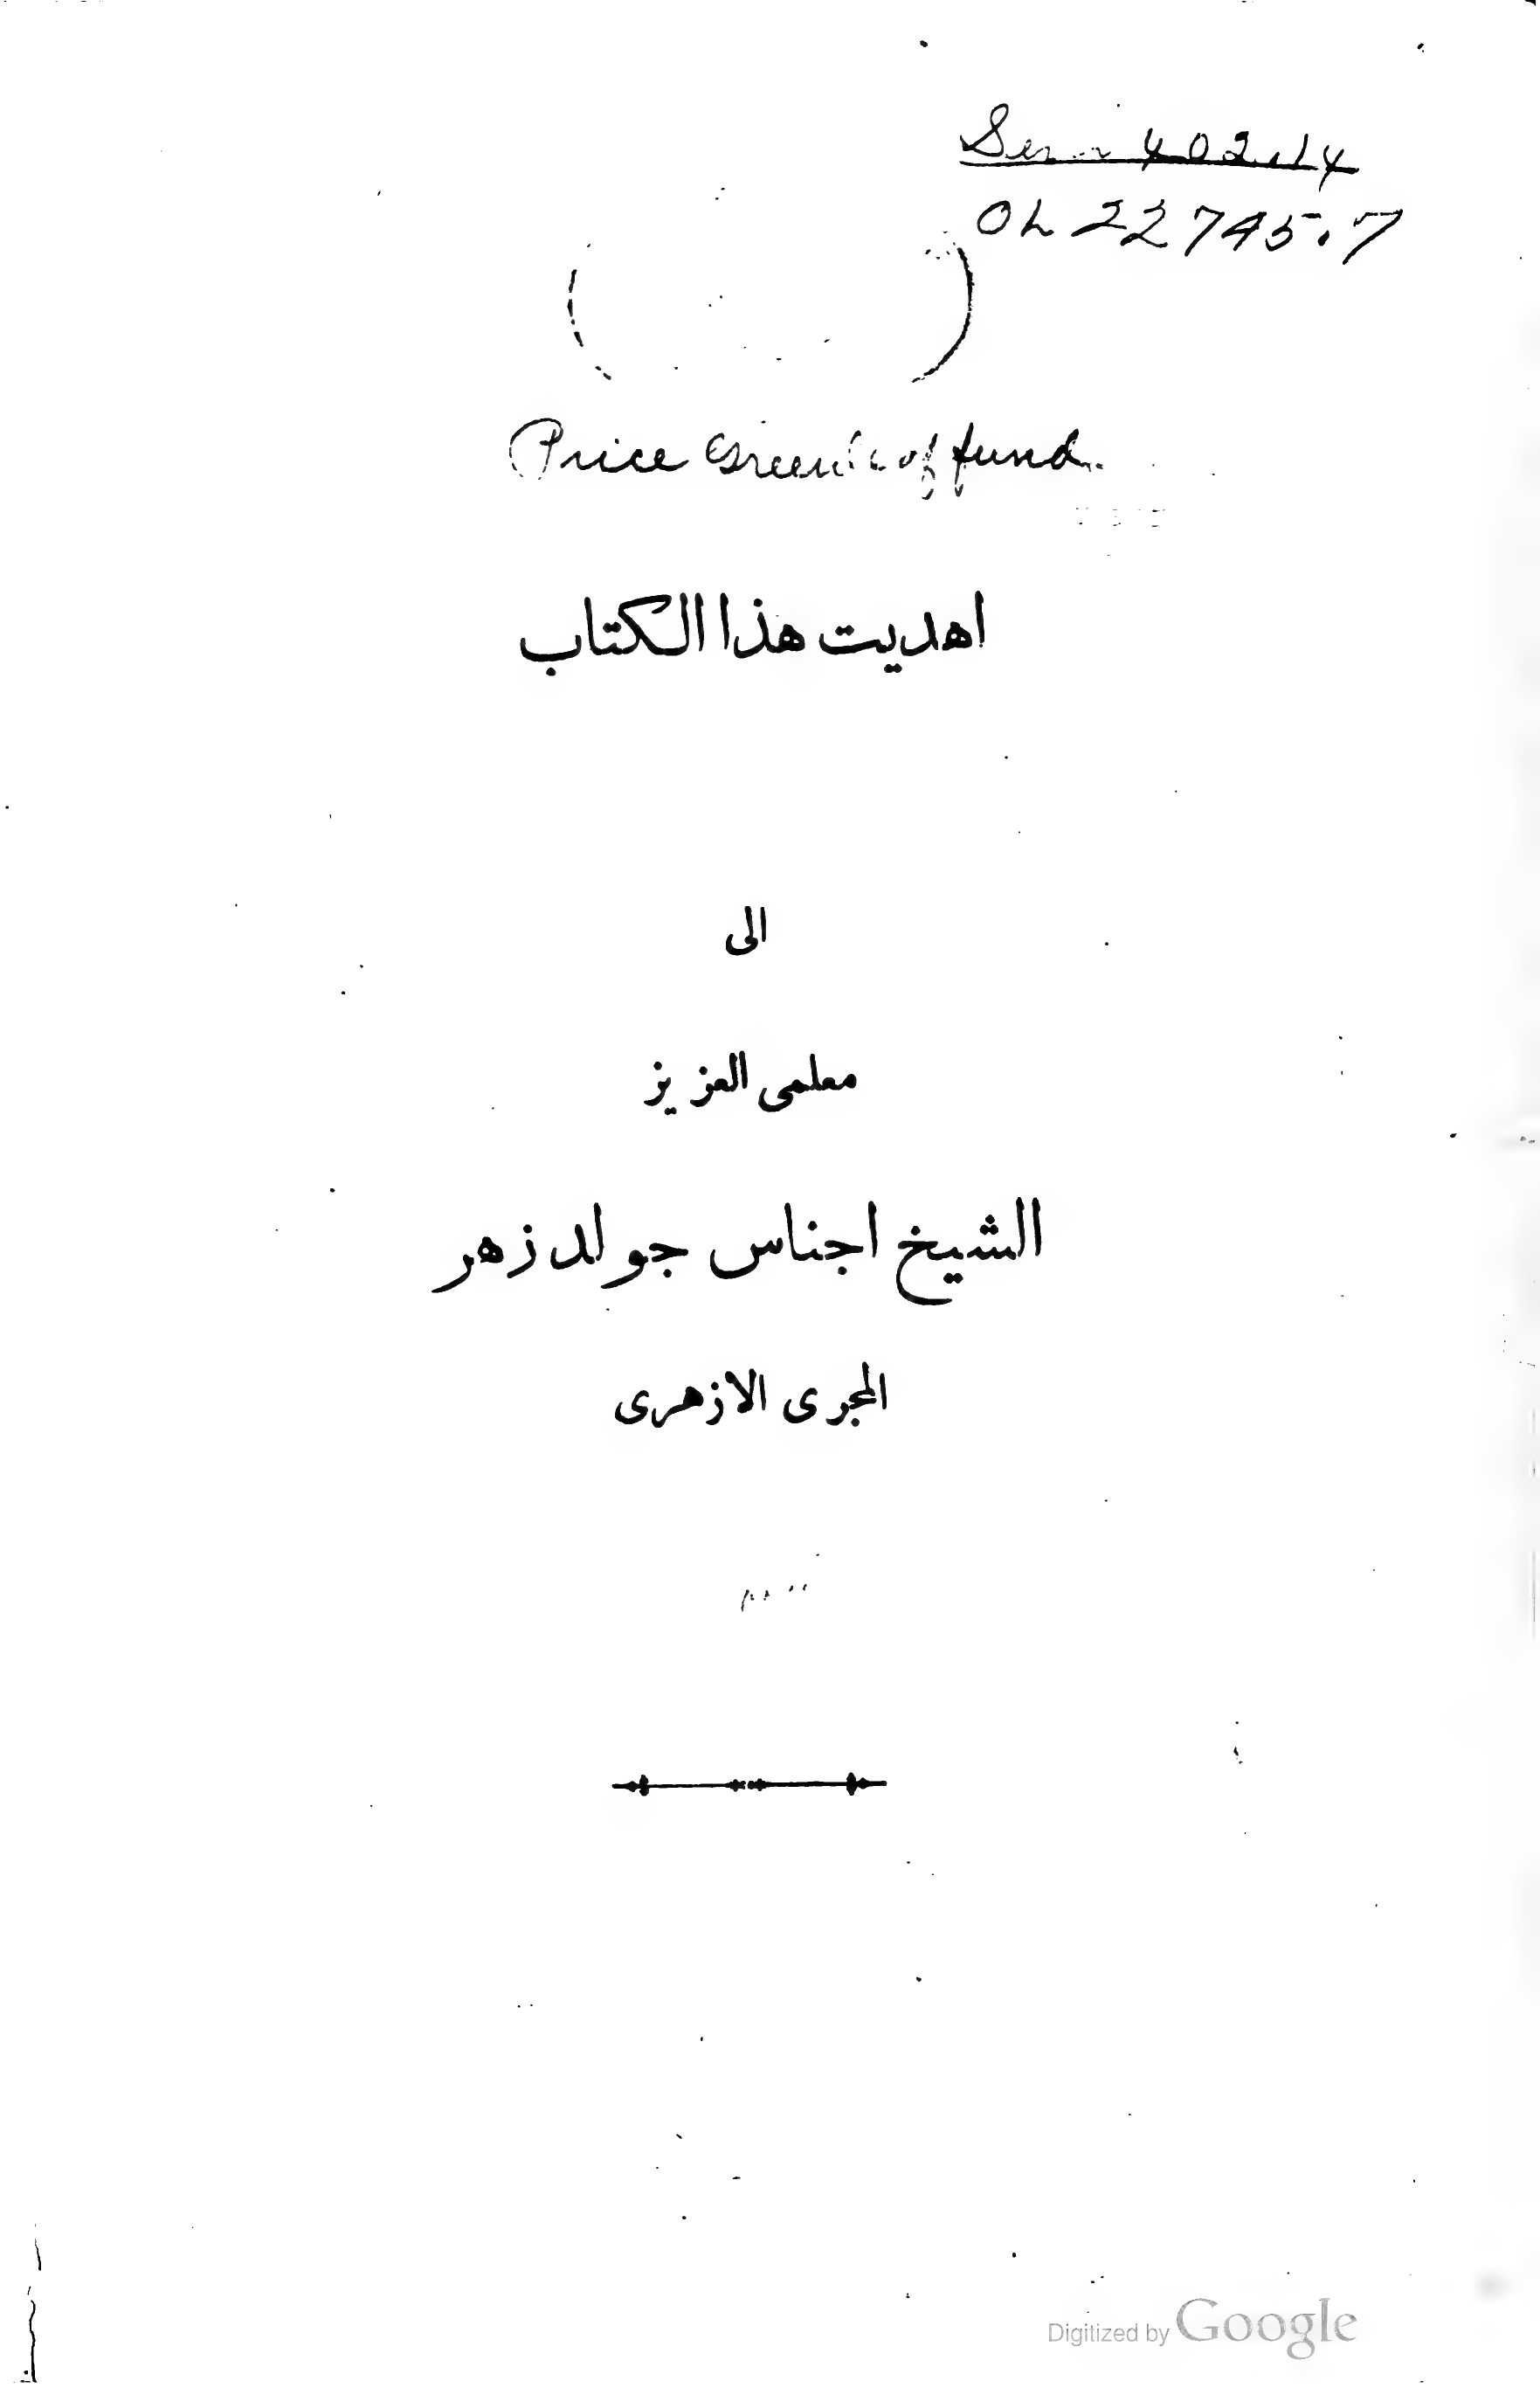 402.14
OL 22745.7
Price Greenleaf fund.
اهديت هذا الكتاب
الى
معلمى العزيز
الشيخ اجناس جولدزهر
المجرى الازهرى
Digitized by Google